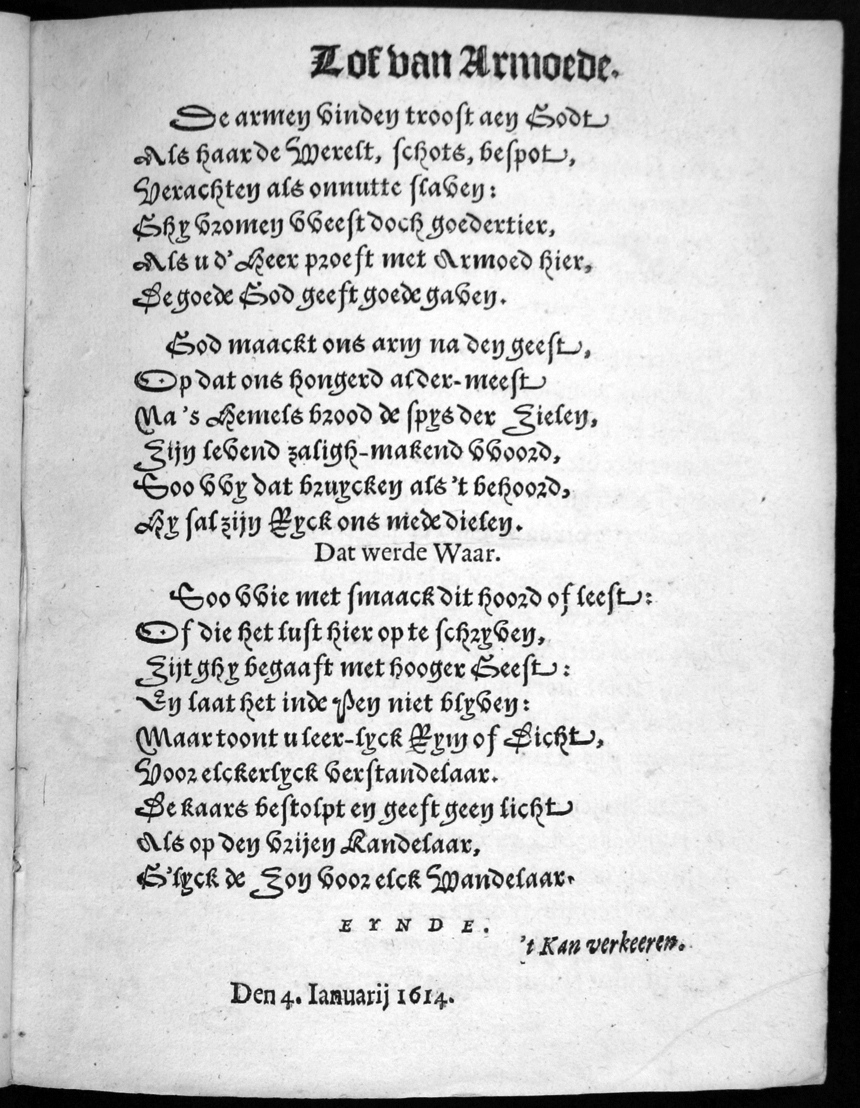 Lof van Armoede.
De armen vinden troost aen Godt
Als haar de Werelt, schots, bespot,
Verachten als onnutte slaven:
Ghy vromen vveest doch goedertier,
Als u d'Heer proeft met Armoed hier,
De goede God geeft goede gaven.
God maackt ons arm na den geest,
Op dat ons hongerd alder-meest
Na 's Hemels brood de spys der Zielen,
Zijn levend zaligh-makend vvoord,
Soo vvy dat bruycken als 't behoord,
Hy sal zijn Ryck ons mede dielen.
Dat werde Waar.
Soo vvie met smaack dit hoord of leest:
Of die het lust hier op te schryven,
Zijt ghy begaaft met hooger Geest:
Ey laat het inde Pen niet blyven:
Maar toont u leer-lyck Rym of Dicht,
Voor elckerlyck verstandelaar.
De kaars bestolpt en geeft geen licht
Als op den vrijen Kandelaar,
G'lyck de Zon voor elck Wandelaar.
EYNDE.
't Kan verkeeren.
Den 4. Ianuarij 1614.